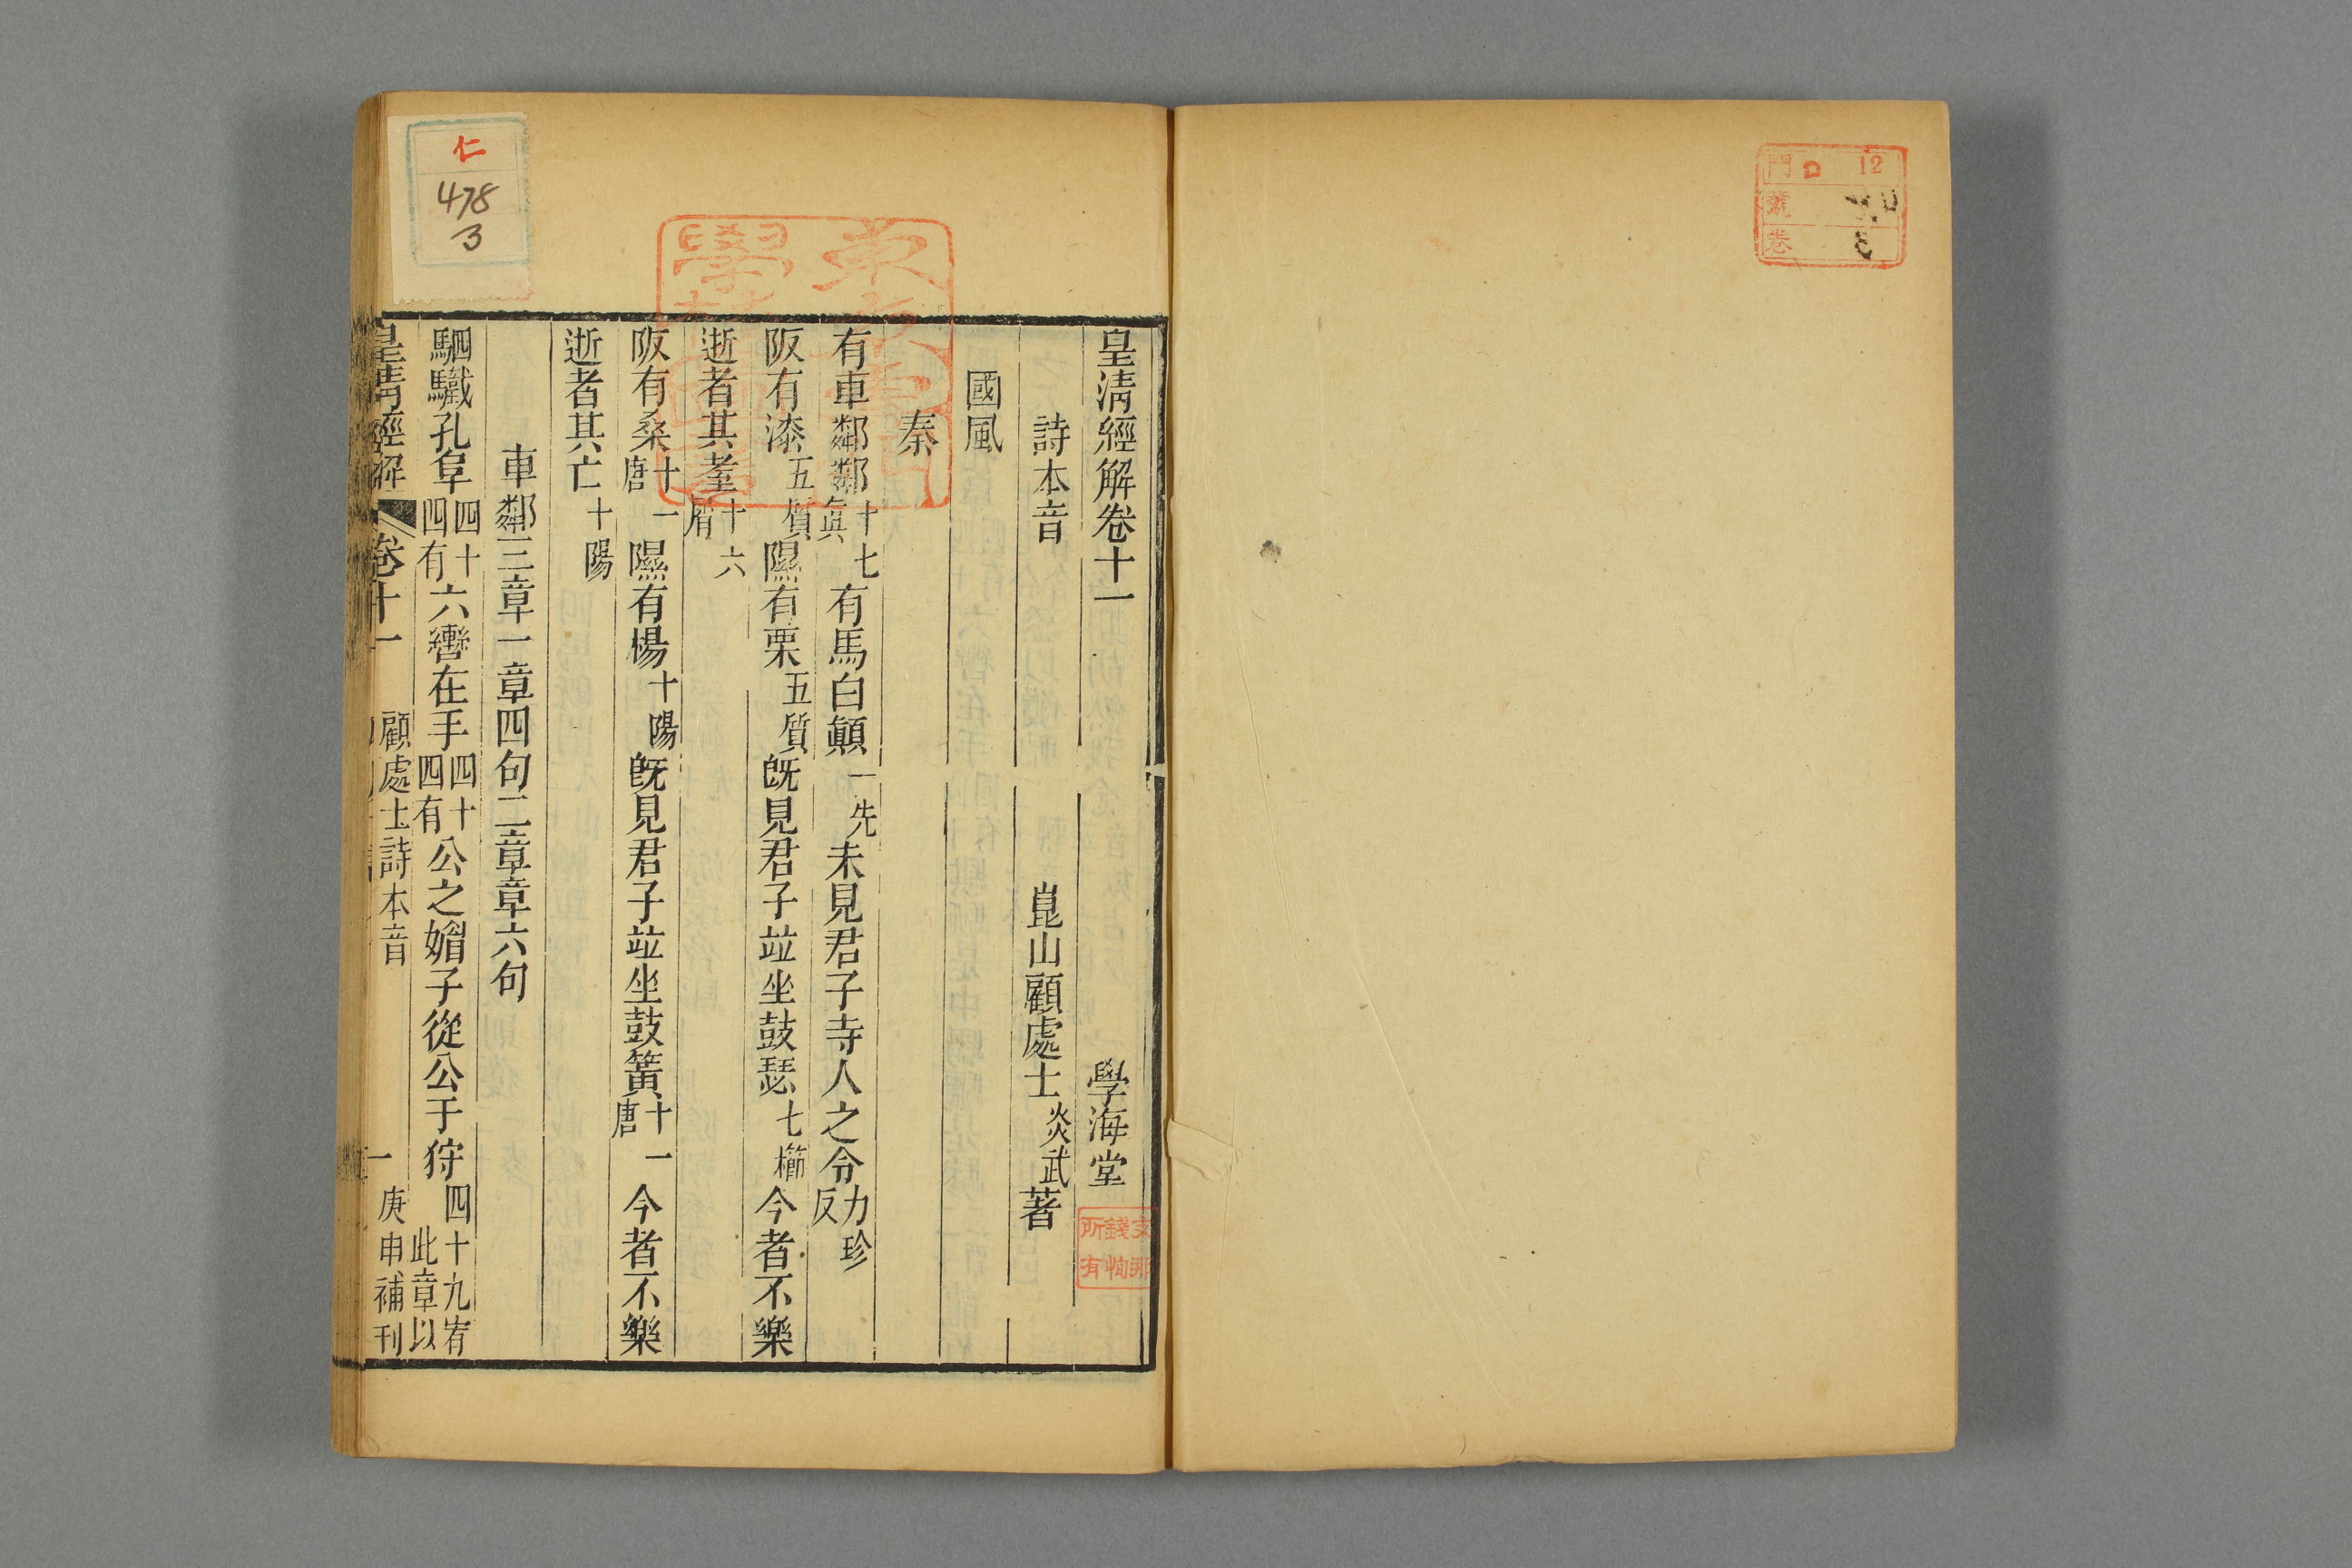 門 ロ 12
號
卷
皇清經解卷十一 學海堂
詩本音 崑山顧處士炎武著
國風
秦
有車鄰鄰十七真有馬白顚一先未見君子寺人之令力珍反
阪有漆五質隰有栗五質旣見君子竝坐鼓瑟七櫛今者不樂
逝者其耋十六屑
阪有桑十一唐隰有楊十陽旣見君子竝坐鼓簧十一唐今者不樂
逝者其亡十陽
車鄰三章一章四句二章章六句
駟驖孔阜四十四有六轡在手四十四有公之媚子從公于狩四十九宥此章以
皇清經解 卷十一 顧處士詩本音 一 庚申補刊
支那
錢恂
所有
仁
478
3